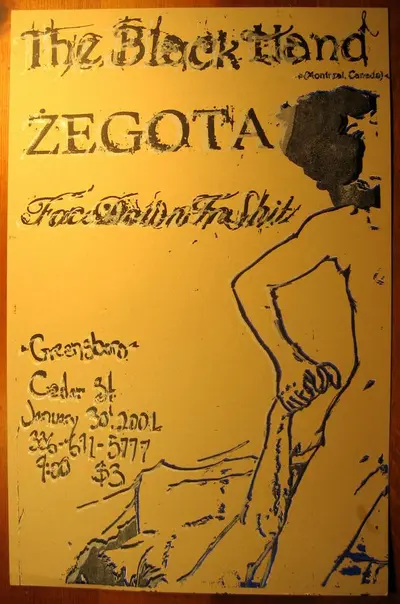 The Black Hand
(Montreal, Canada)
ŻEGOTA
Face Down In Shit
-Greensboro-
Cedar St.
January 30th
9:00 $3